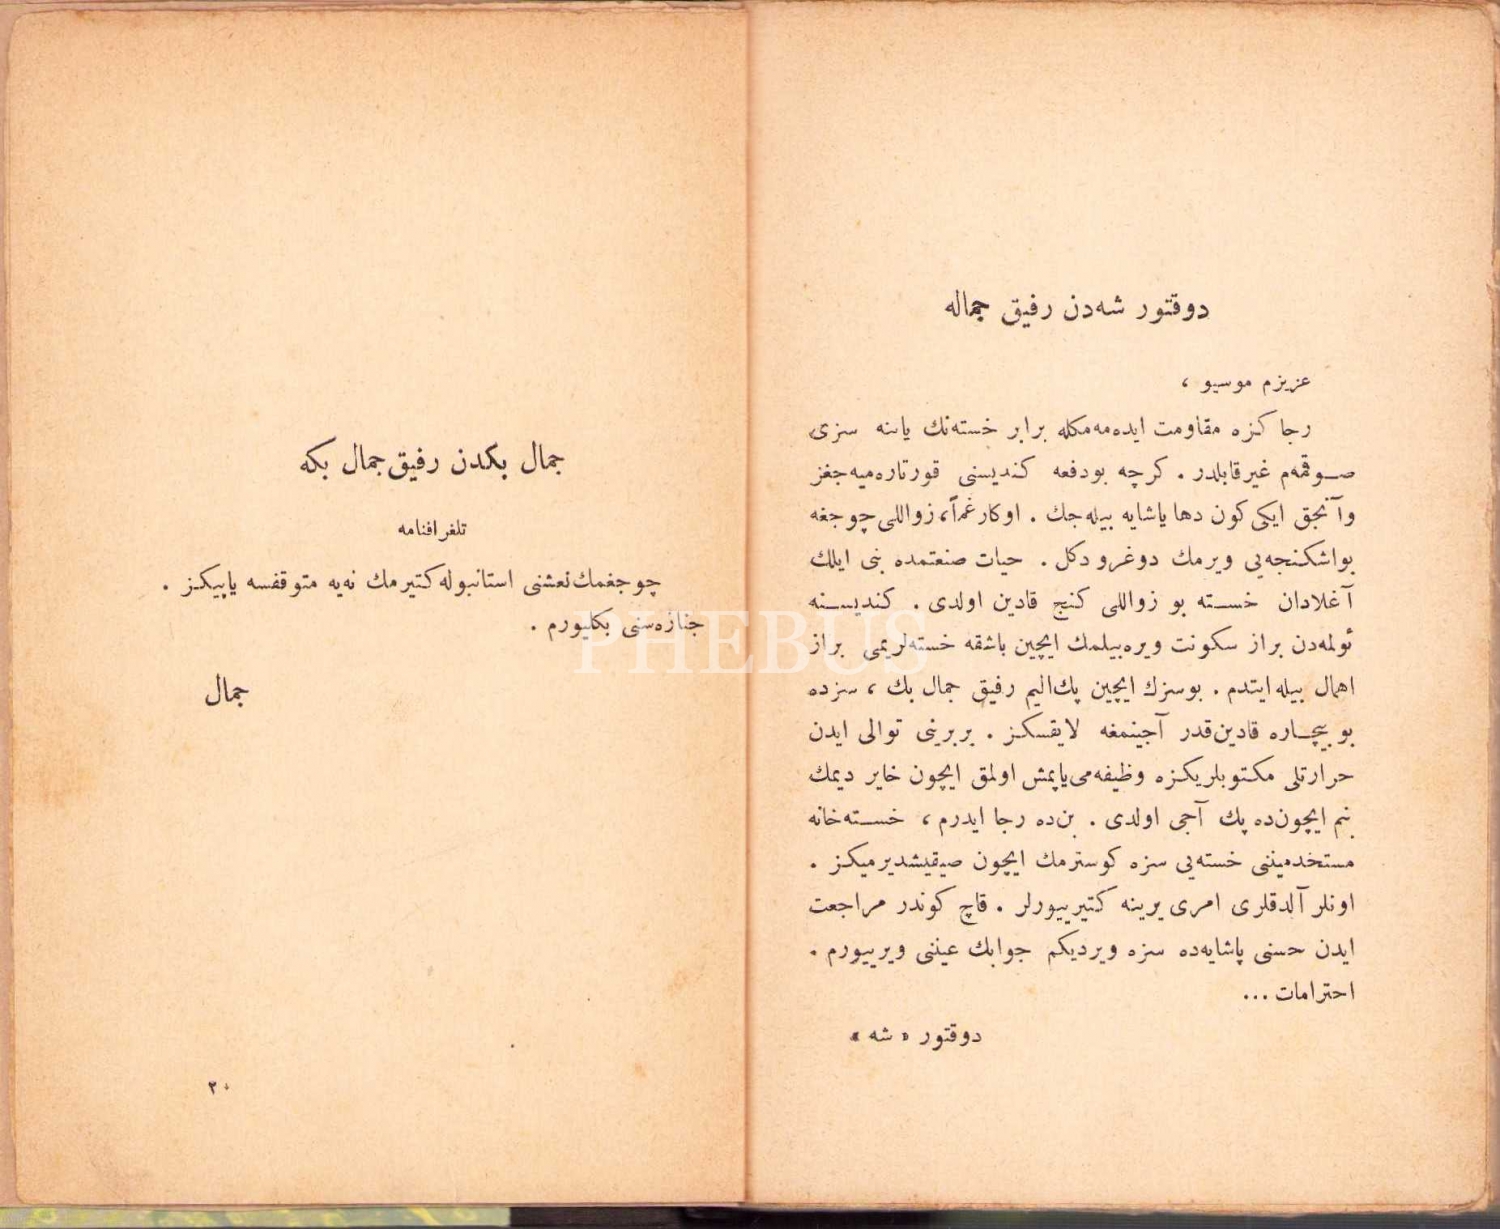 دوقتور شه‌دن رفيق جماله
عزيزم موسيو ،
رجا كزه مقاومت ايده‌مه‌مكله برابر خسته‌نك ياننه سزى
صوقمه‌م غيرقابلدر . كرچه بودفعه كنديسنى قورتاره‌ميه‌جغز
وآنجق ايكى كون دها ياشايه بيله‌جك . اوكا رغماً، زواللى چوجغه
بواشكنجه‌يى ويرمك دوغرو دكل . حيات صنعتمده بنى ايلك
آغلادان خسته بو زواللى كنج قادين اولدى . كنديسنه
ئولمه‌دن براز سكونت ويره‌بيلمك ايچين باشقه خسته‌لريمى براز
اهمال بيله ايتدم . بوسزك ايچين پك‌اليم رفيق جمال بك ، سزده
بو بيچاره قادين‌قدر آجينمغه لايقسكز . بربرينى توالى ايدن
حرارتلى مكتوبلريكزه وظيفه‌مى‌ياپمش اولمق ايچون خاير ديمك
بنم ايچون‌ده پك آجى اولدى . بن‌ده رجا ايدرم ، خسته‌خانه
مستخدميننى خسته‌يى سزه كوسترمك ايچون صيقيشديرميكز .
اونلر آلدقلرى امرى يرينه كتيرييورلر . قاچ كوندر مراجعت
ايدن حسنى پاشايه‌ده سزه ويرديكم جوابك عيننى ويرييورم .
احترامات ...
دوقتور « شه »
جمال بكدن رفيق جمال بكه
تلغرافنامه
چوجغمك نعشنى استانبوله كتيرمك نه‌يه متوقفسه ياپيكز .
جنازه‌سنى بكليورم .
جمال
٢٠
PHEBUS